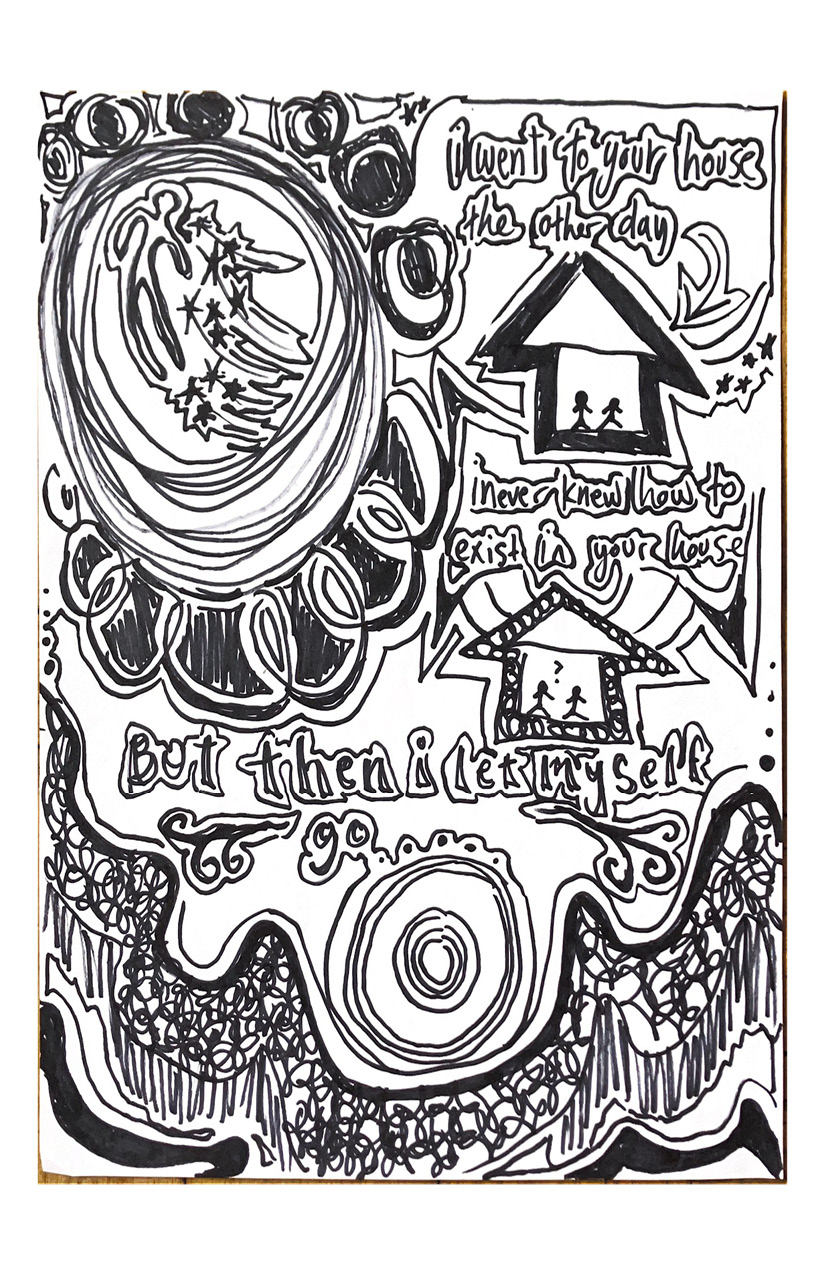 i went to your house
the other day
i never knew how to
exist in your house
?
But then i let myself
go